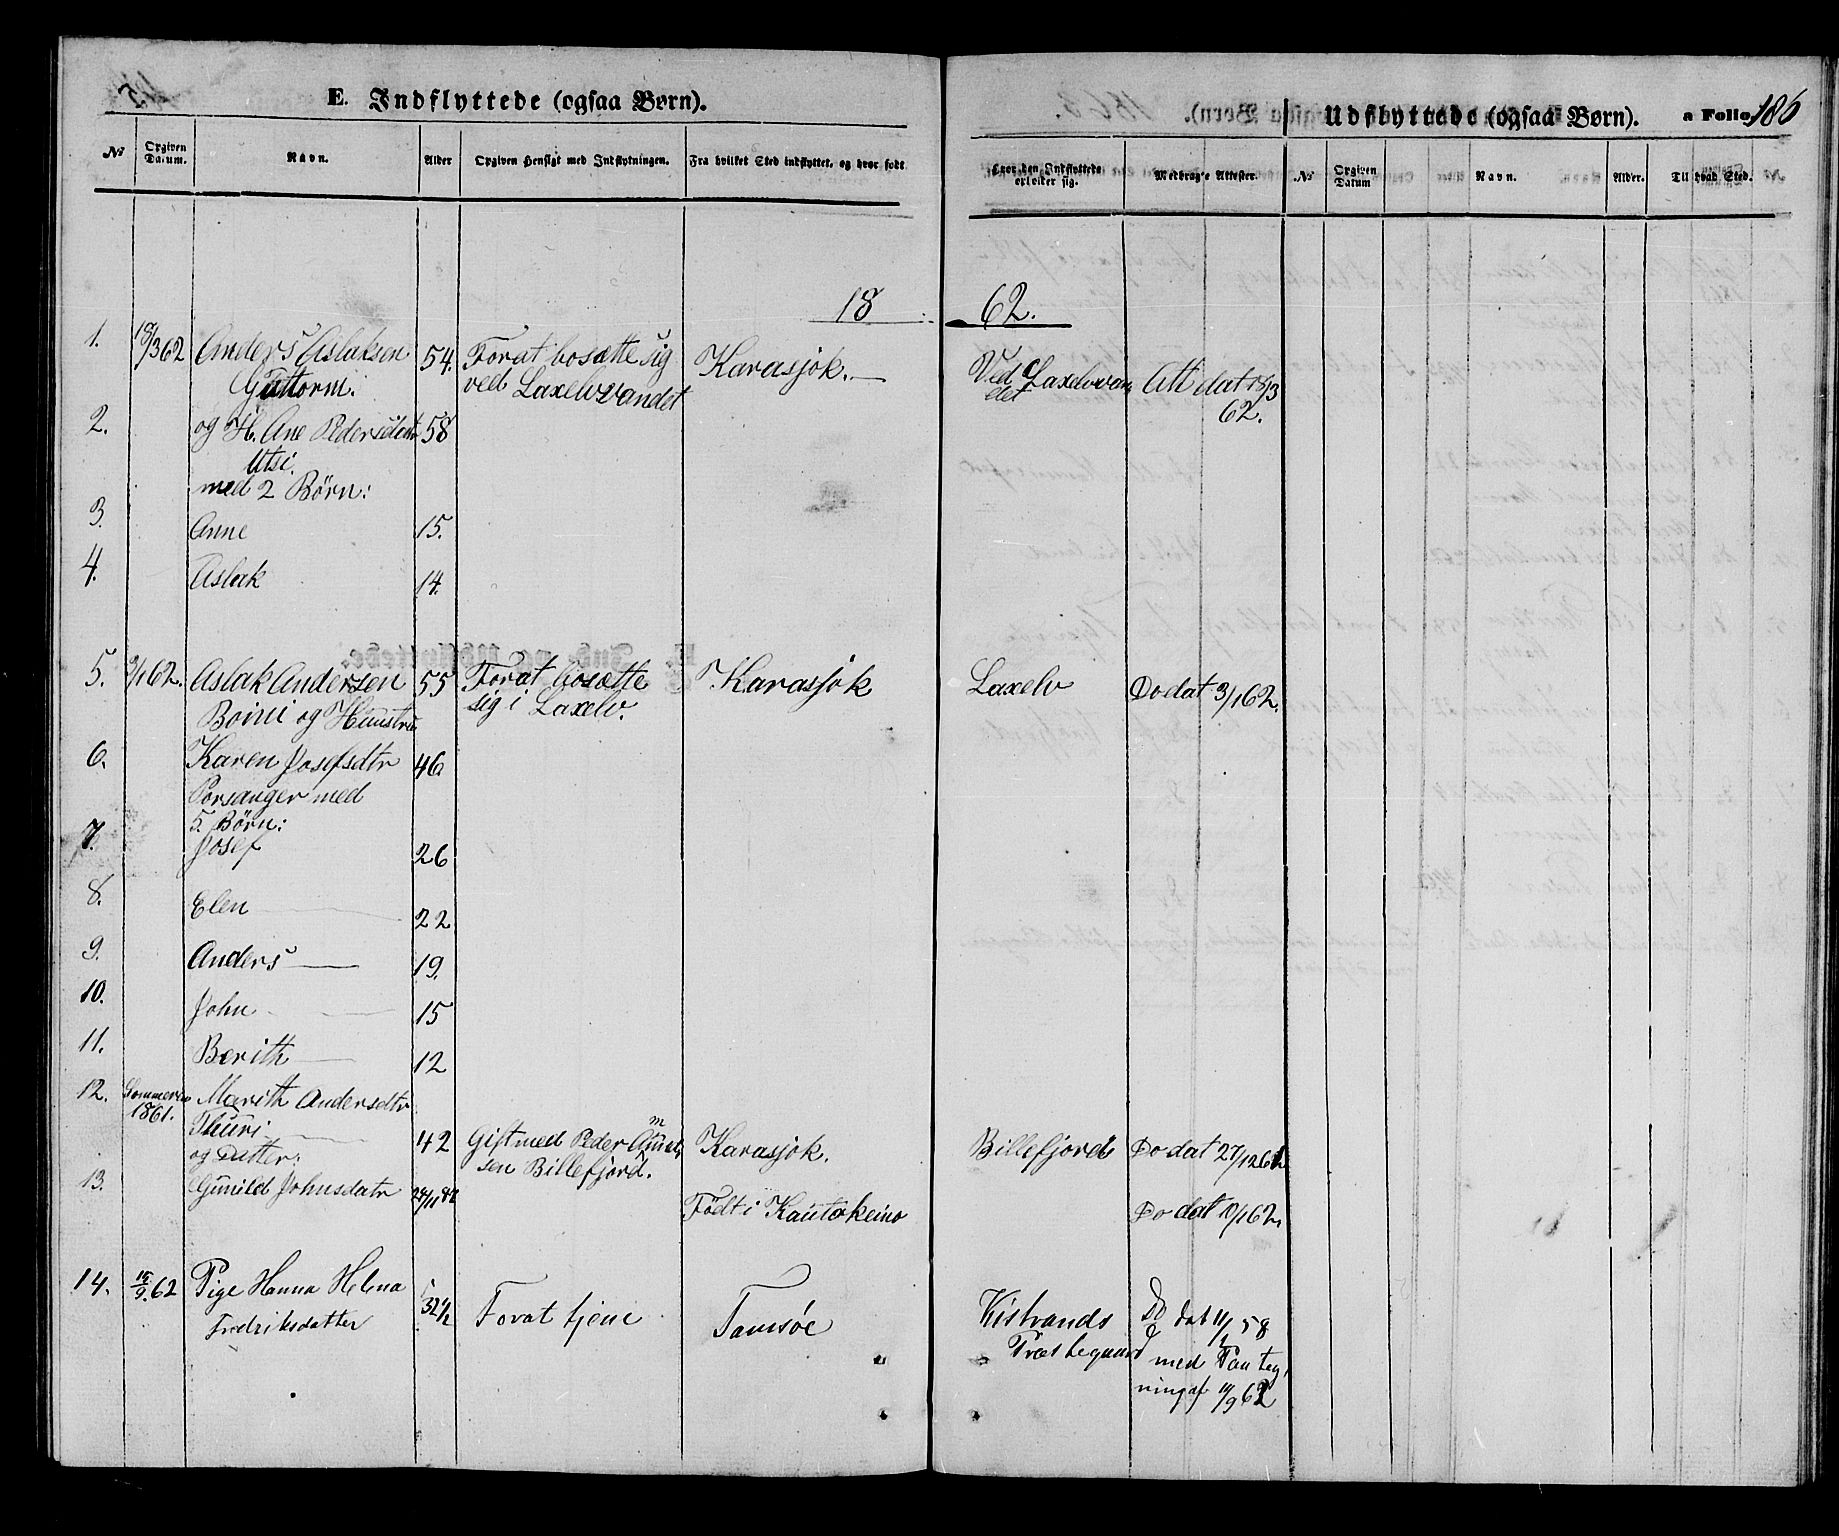 E. Indflyttede (ogsaa Børn).
Udflyttede (ogsaa Børn).
a Folio 186
№ Opgiven Datum. Navn. Alder Opgiven Hensigt med Indflytningen. Fra hvilket Sted indflyttet, og hvor født
Hvor den Indflyttede opholder sig. Medbragte Attester. № Opgiven Datum Navn. Alder. Til hvad Sted.
18 62.
1. 18/3 62 Anders Aslaksen 54. Forat bosætte sig Karasjok. Ved Laxelvvan Att dat 18/3
Guttorm. ved Laxelvvandet det 62.
2. og H. Ane Pedersdatr 58
Utsi.
med 2 Børn:
3. Anne 15.
4. Aslak 14.
5. 3/1 62. Aslak Andersen 55 Forat bosætte Karasjok Laxelv Do dat 3/1 62.
Boini og Hustru sig i Laxelv.
6. Karen Josefsdtr 46
Porsanger med
5. Børn:
7. Josef 26
8. Elen 22
9. Anders 19.
10. John 15
11. Berith 12
12. Sommeren Marith Andersdtr
1861. Thuri 42 Gift med Peder Amund Karasjok. Billefjord Do dat 27/12 61
og Datter: sen Billefjord.
13. Gunild Johnsdatr Født i Kautokeino Do dat 10/1 62
14. 15/9 62 Pige Hanna Helena 32 1/2 Forat tjene Tamsøe Kistrands Do dat 11/2 58
Fredriksdatter Præstegaard med Paateg
ning af 14/9 62